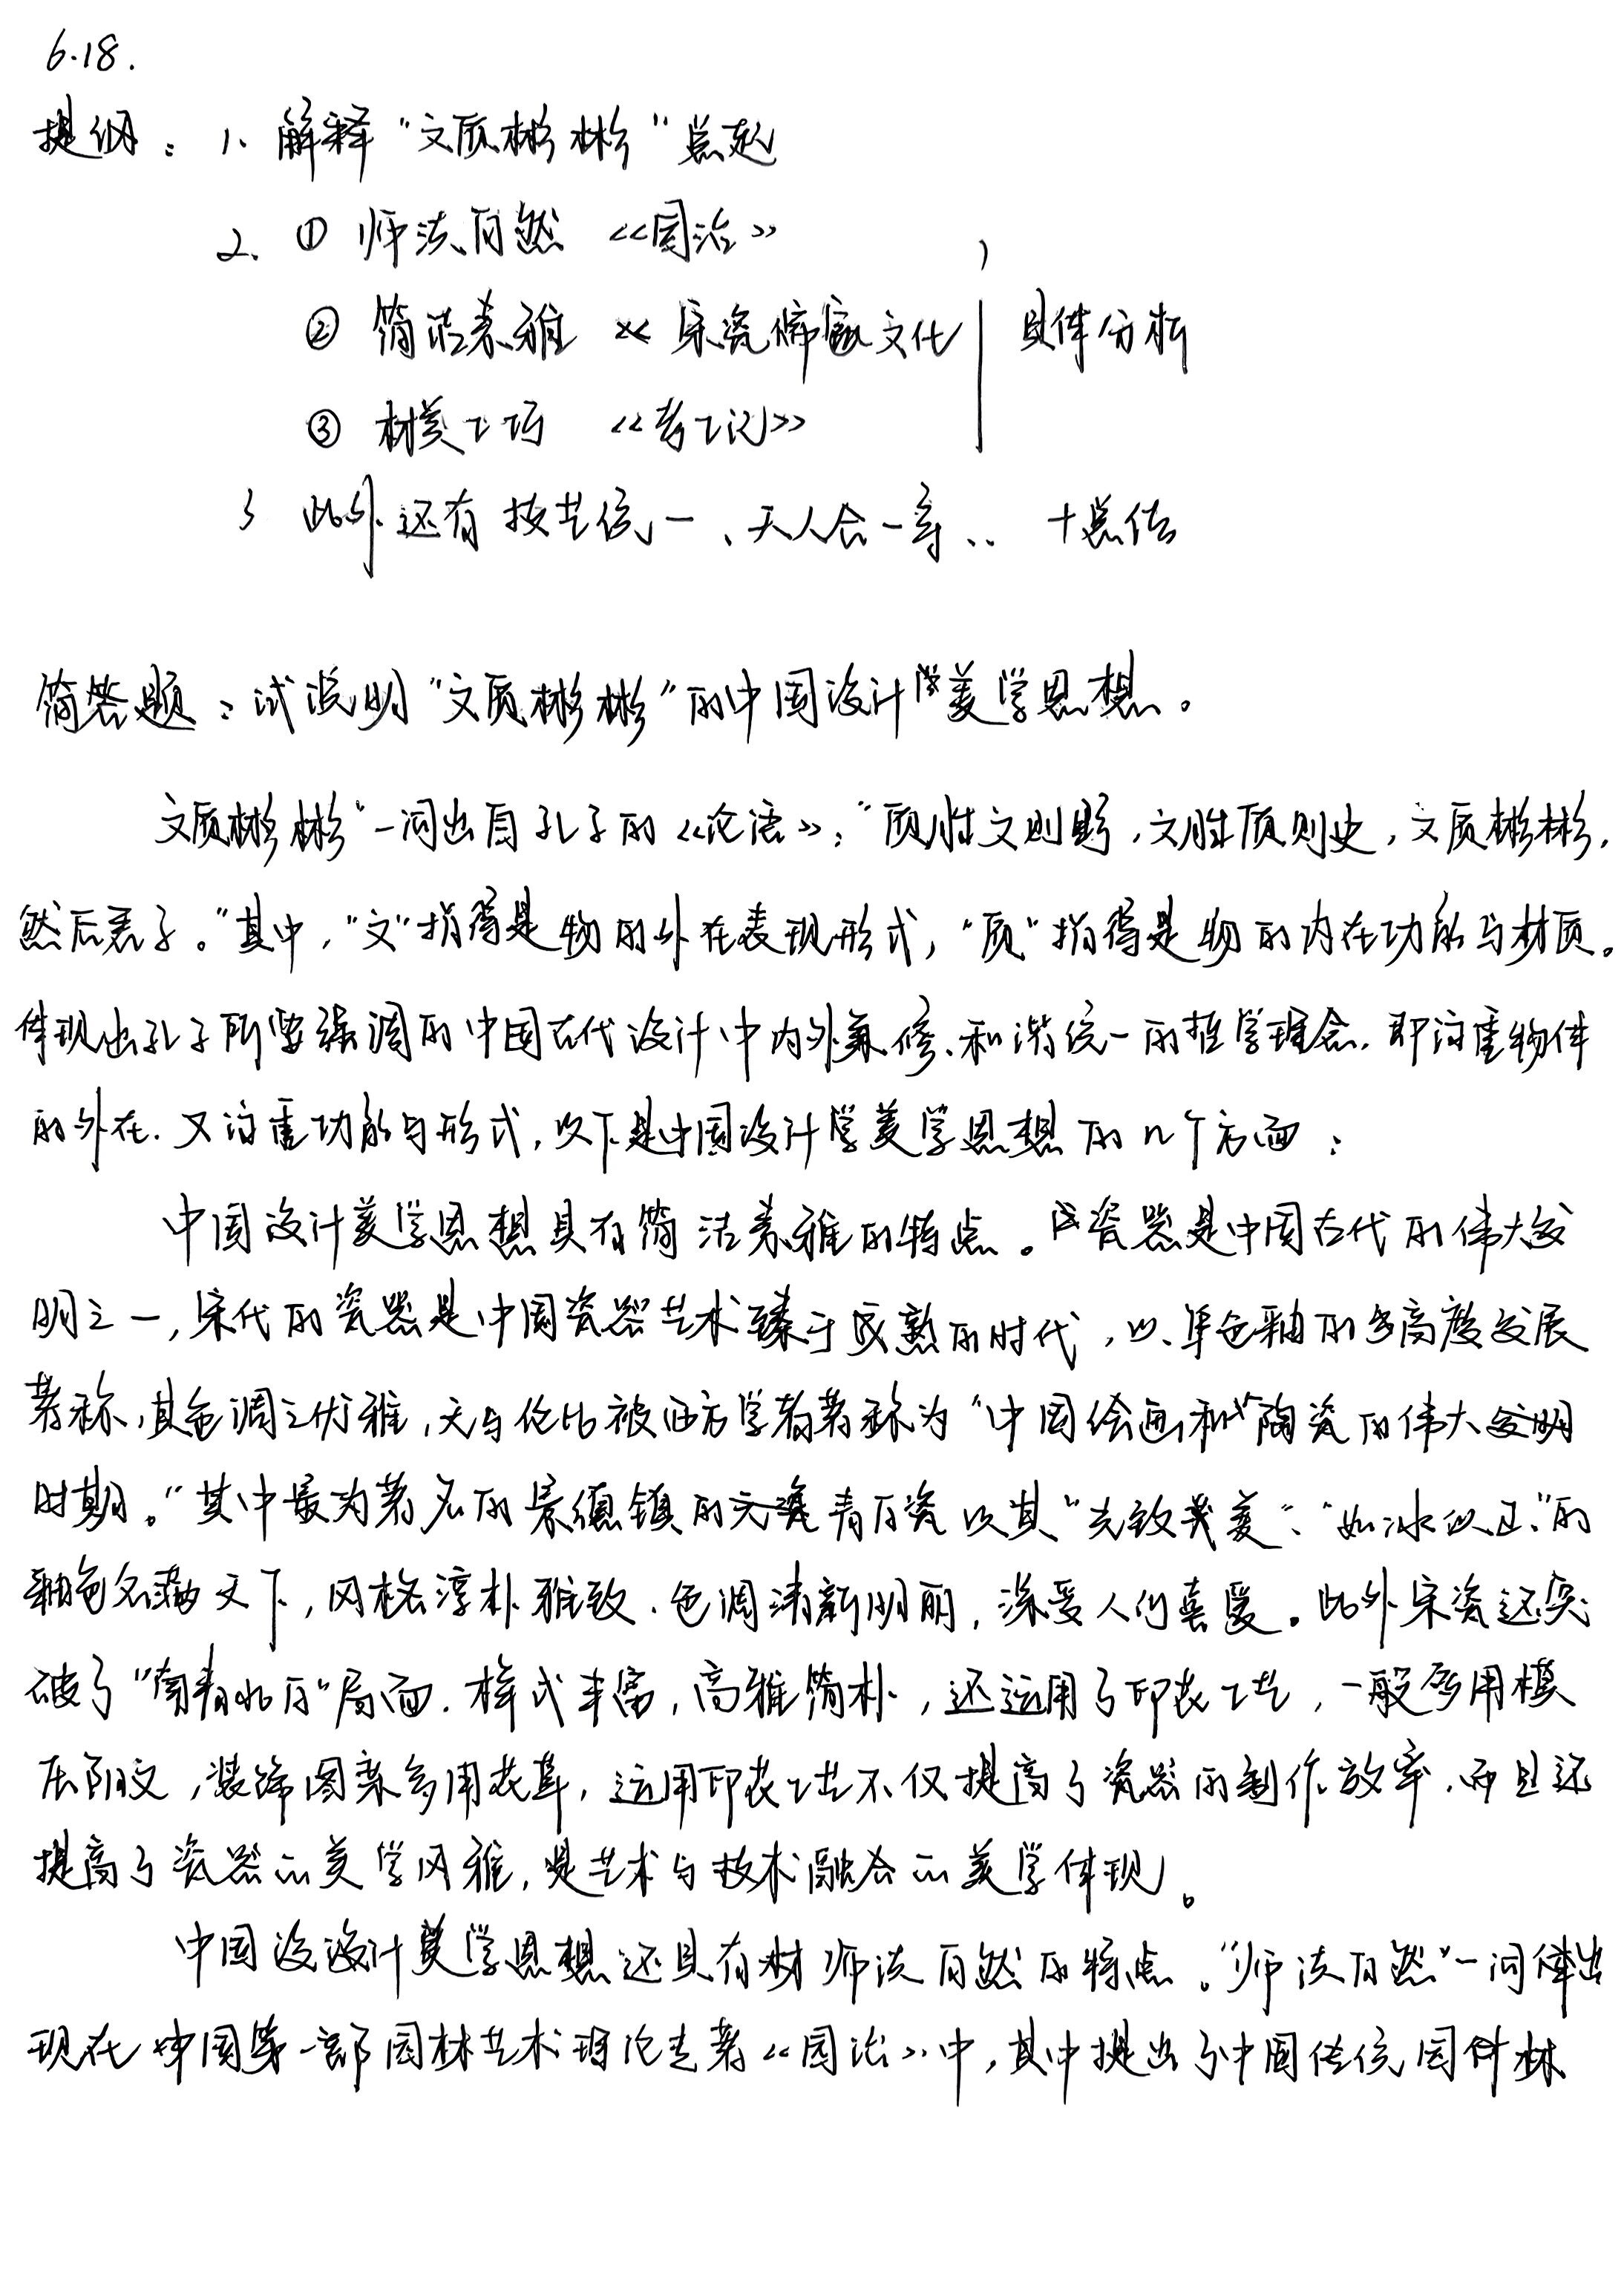 6.18.
提纲：1、解释“文质彬彬”总起
2、① 师法自然 《园冶》
② 简洁素雅 宋瓷 文化 具体分析
③ 材美工巧 《考工记》
3 此外还有技艺统一、天人合一等.. 十总结
简答题：试说明“文质彬彬”的中国设计学美学思想。
文质彬彬“一词出自孔子的《论语》：“质胜文则野，文胜质则史，文质彬彬，
然后君子。”其中，“文”指得是物的外在表现形式，“质”指得是物的内在功能与材质。
体现出孔子所强调的中国古代设计中内外兼修、和谐统一的哲学理念，即注重物体
的外在、又注重功能与形式，以下是中国设计学美学思想的几个方面：
中国设计美学思想具有简洁素雅的特点。瓷器是中国古代的伟大发
明之一，宋代的瓷器是中国瓷器艺术臻于成熟的时代，以单色釉的高度发展
著称，其色调之优雅，无与伦比被西方学者著称为“中国绘画和陶瓷的伟大
时期。“其中最为著名的景德镇的青白瓷以其“光致茂美”、“如冰似玉”的
釉色名满天下，风格淳朴雅致、色调清新明丽，深受人们喜爱。此外宋瓷还突
破了“南青北白“局面、样式丰富，高雅简朴，还运用了印花工艺，一般多用模
压阴文，装饰图案多用花草，运用印花工艺不仅提高了瓷器的制作效率、而且还
提高了瓷器的美学风雅，是艺术与技术融合的美学体现。
中国设计美学思想还具有师法自然的特点。“师法自然”一词出
现在中国第一部园林艺术理论专著《园冶》中，其中提出了中国传统园林